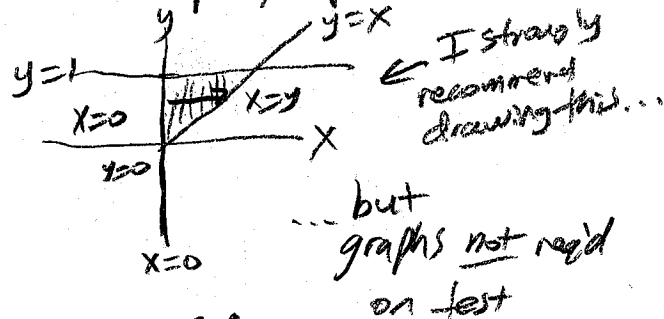 y
y=x
y=1
x=0
x=y
X
y=0
x=0
← I strongly
recommend
drawing this...
... but
graphs not req'd
on test